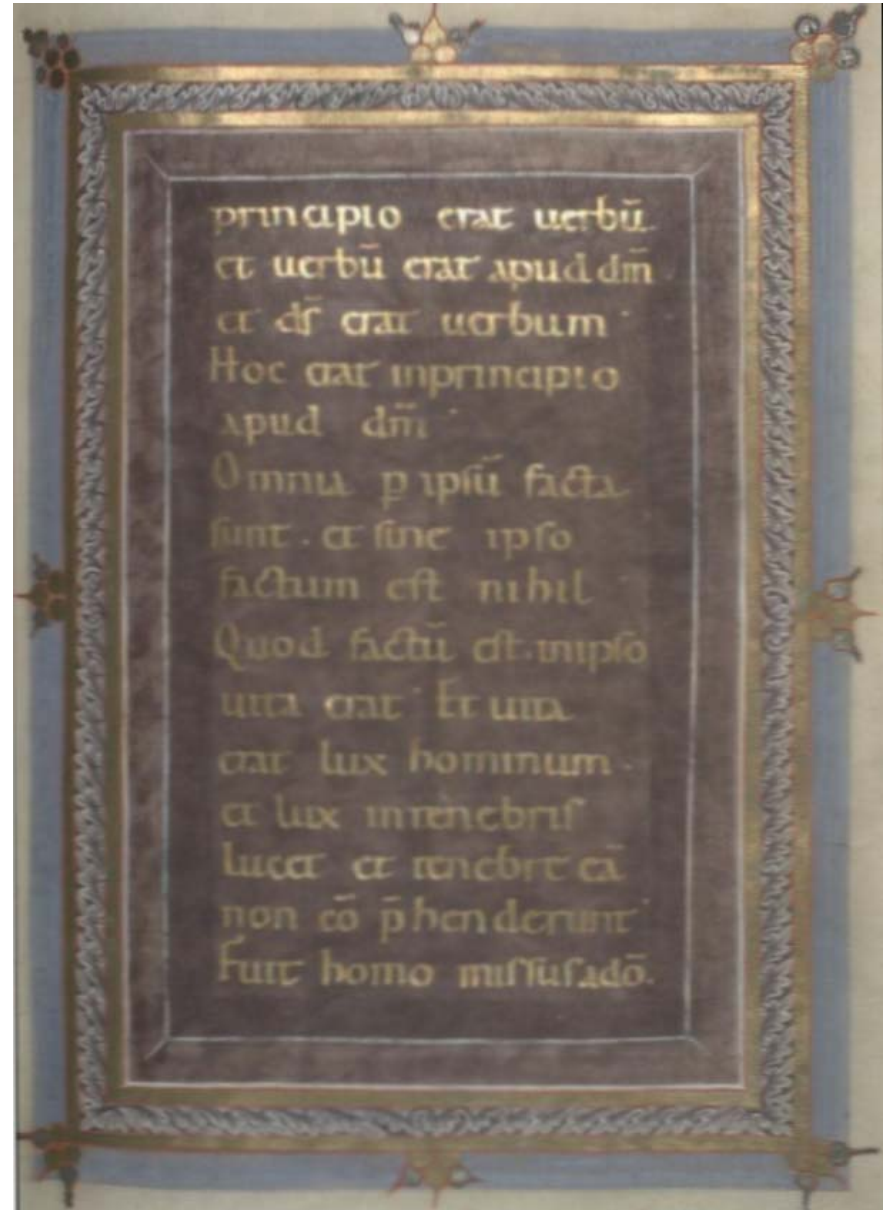 principio erat uerbū.
et uerbū erat apud dm̄.
et dſ̄ erat uerbum.
Hoc erat inprincipio
apud dm̄.
Omnia ꝑ ipſū facta
ſunt. et ſine ipſo
factum eſt nihil.
Quod factū eſt. inipſo
uita erat. Et uita
erat lux hominum.
et lux intenebriſ
lucet et tenebrę eā
non cō p̄henderunt.
Fuit homo miſſuſadō.